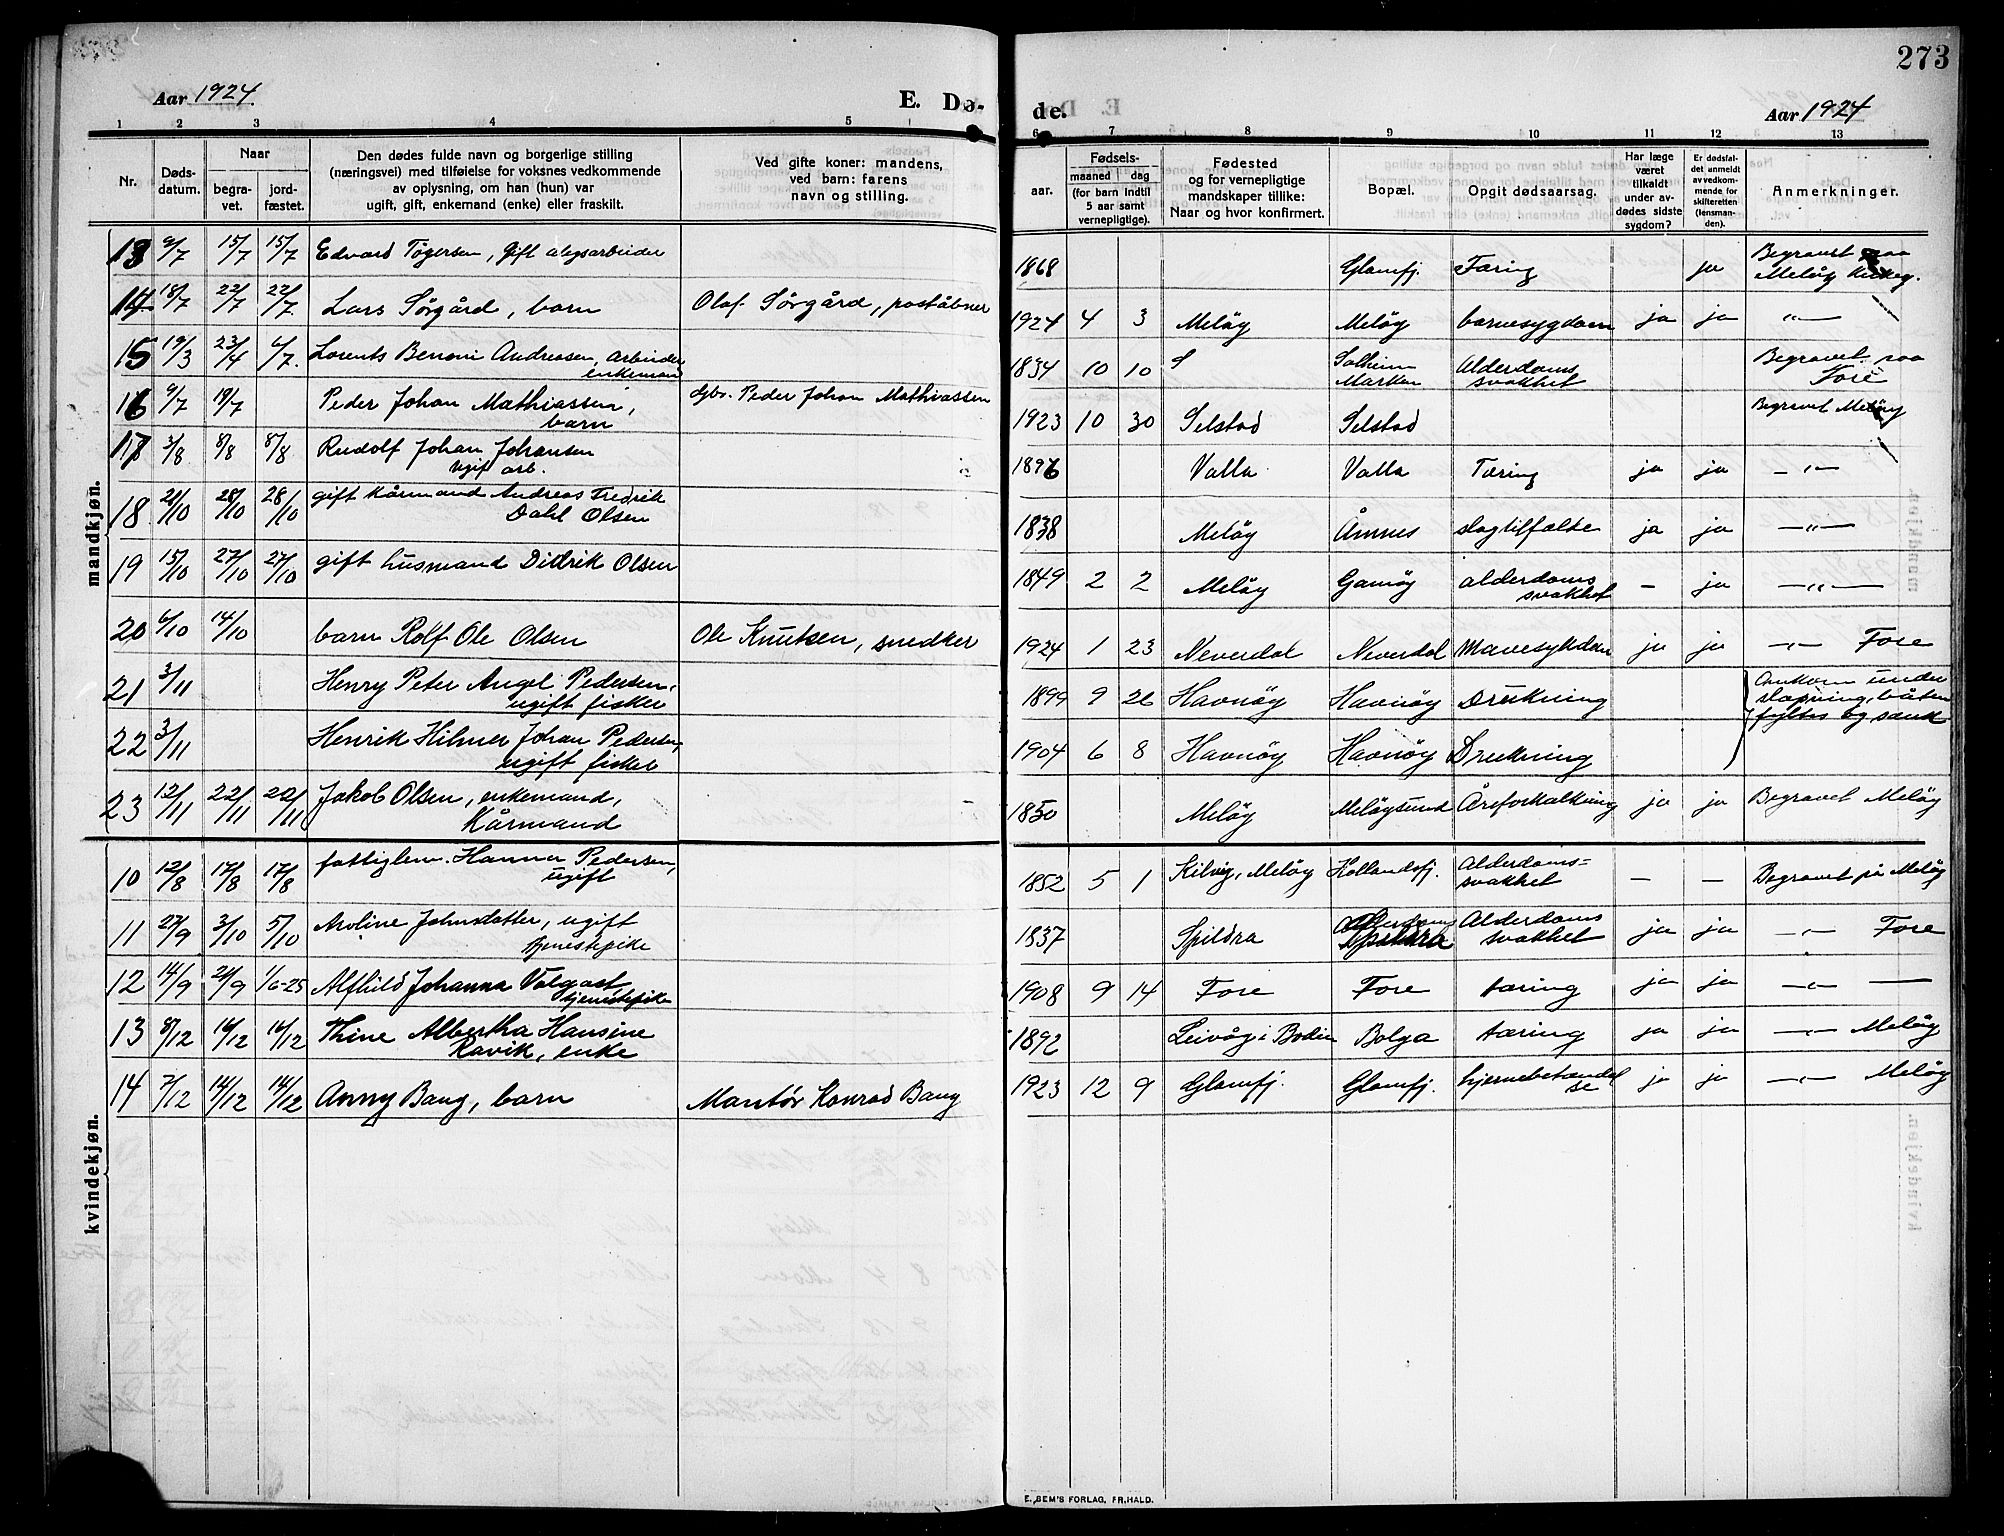 273
Aar 1924 E. Dø-
de. Aar 1924
1 2 3 4 5
6 7 8 9 10 11 12 13
Nr.
Døds-
datum.
Naar
begra-
vet.
jord-
fæstet.
Den dødes fulde navn og borgerlige stilling
(næringsvei) med tilføielse for voksnes vedkommende
av oplysning, om han (hun) var
ugift, gift, enkemand (enke) eller fraskilt.
Ved gifte koner: mandens,
ved barn: farens
navn og stilling.
Fødsels-
aar.
maaned dag
(for barn indtil
5 aar samt
vernepligtige).
Fødested
og for vernepligtige
mandskaper tillike:
Naar og hvor konfirmert.
Bopæl.
Opgit dødsaarsag.
Har læge
været
tilkaldt
under av-
dødes sidste
sygdom?
Er dødsfal-
det anmeldt
av vedkom-
mende for
skifteretten
(lensman-
den).
Anmerkninger.
mandkjøn.
13 9/7 15/7 15/7 Edvard Tøgersen, Gift
1868 Glomfj. Tæring ja Begravet paa
Meløy Kirkeg.
14 18/7 22/7 22/7 Lars Sørgård, barn Olaf Sørgård, poståbner
1924 4 3 Meløy Meløy barnesygdom ja ja —„—
15 19/3 23/4 6/7. Lorents Benoni Andreasen, arbeider
enkemand
1834 10 10 Solheim
Marken Alderdoms
svakhet Begravet paa
Fore
16 9/7 19/7 Peder Johan Mathiassen,
barn dgbr. Peder Johan Mathiassen
1923 10 30 Selstad Selstad Begravet Meløy
17 3/8 8/8 8/8 Rudolf Johan Johansen
ugift arb.
1896 Valla Valla Tæring ja ja —„—
18 21/10 28/10 28/10 gift kårmand Andreas Fredrik
Dahl Olsen
1838 Meløy Åmnes slagtilfælde ja ja —„—
19 15/10 27/10 27/10 gift husmand Didrik Olsen
1849 2 2 Meløy Gamøy alderdoms
svakhet — ja —„—
20 6/10 14/10 barn Rolf Ole Olsen Ole Knutsen, snedker
1924 1 23 Neverdal Neverdal Mavesykdom ja ja —„— Fore
21 3/11 Henry Peter Angel Pedersen,
ugift fisker
1899 9 26 Havnøy Havnøy Drukning Omkom under
båten
fyltes og sank
22 3/11 Henrik Hilmer Johan Pedersen,
ugift fisker
1904 6 8 Havnøy Havnøy Drukning
23 12/11 22/11 22/11 Jakob Olsen, enkemand,
Kårmand
1850 Meløy Meløysund Åreforkalkning ja ja Begravet Meløy
kvindekjøn.
10 12/8 17/8 17/8 fattiglem. Hanna Pedersen,
ugift
1852 5 1 Kilvig, Meløy Hollandsfj. Alderdoms=
svakhet — — Begravet på Meløy
11 27/9 3/10 5/10 Aroline Johnsdatter, ugift
tjenestepike
1837 Spildra Spildra Alderdoms
svakhet ja ja —„— Fore
12 14/9 21/9 1/6-25 Alfhild Johanna Volgast
tjenestepike
1908 9 14 Fore Fore tæring ja ja —„— —
13 8/12 16/12 16/12 Thine Albertha Hansine
Ravik, enke
1892 Leivåg i Bodin Bolga tæring ja ja —„— Meløy
14 7/12 14/12 14/12 Anny Bang, barn Mantør Konrad Bang
1923 12 9 Glomfj. Glomfj. hjernebetændel
se ja ja —„— Meløy
E. SEM'S FORLAG, FR.HALD.